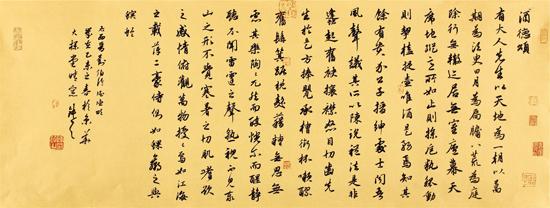 酒德頌
有大人先生以天地為一朝以萬
期為須臾日月為扃牖八荒為庭
除行無轍迹居無室廬幕天
席地縱意所如止則操卮執觚動
則挈榼提壺唯酒是務焉知其
餘有貴介公子搢紳處士聞吾
風聲議其所以陳說禮法是非
鋒起奮袂攘襟怒目切齒先
生於是方捧甖承槽銜杯漱醪
奮髯箕踞枕麴藉糟無思無
慮其樂陶陶兀然而醉恍爾而醒靜
聽不聞雷霆之聲熟視不見泰
山之形不覺寒暑之切肌嗜欲
之感情俯觀萬物擾擾焉如江海
之載浮萍二豪侍側焉如蜾蠃之與
螟蛉
酒德頌
之春於京華